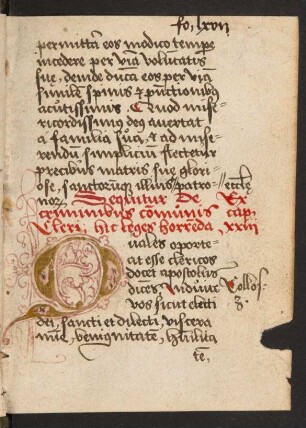 fo. lxvii
permittā eos modico tempore
incedere per viā voluptatis
sue, deinde ducā eos per viā
similē spinis & punctionibus
acutissimis. Quod mise-
ricordissimus deg auertat
a familia sua, & ad mise-
rendū simplicium flectetur
precibus matris sue glori-
ose, sanctorūq illius patro-
noꝝ. Sequitur De Ex
criminibus cōmunis cap.
Cleri, hic leges horrēda, xxiii
Quales oporte-
at esse clericos
docet apostolus
dicēs, Induite Collos.
vos sicut electi 3.
dei, sancti et dilecti, viscera
mīe, benignitatē, hūilita
tē.